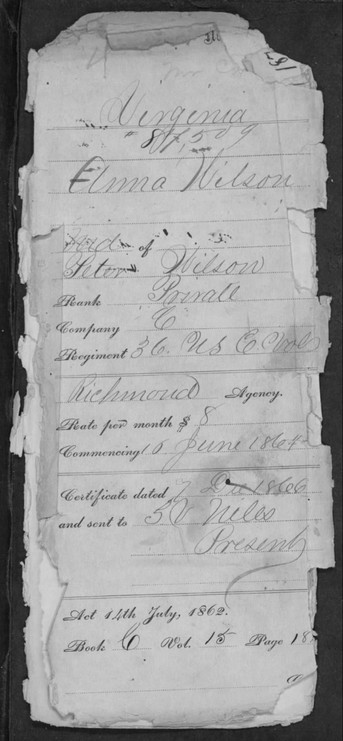 Virginia
Anna Wilson
Wid of
Peter Wilson
Rank Private
Company C
Regiment 36. US C Vols
Richmond Agency.
Rate per month $ 8
Commencing 16. June 1864
Certificate dated 7 Dec 1866
and sent to J V Niles
Present
Act 14th July, 1862.
Book C Vol. 15 Page 18